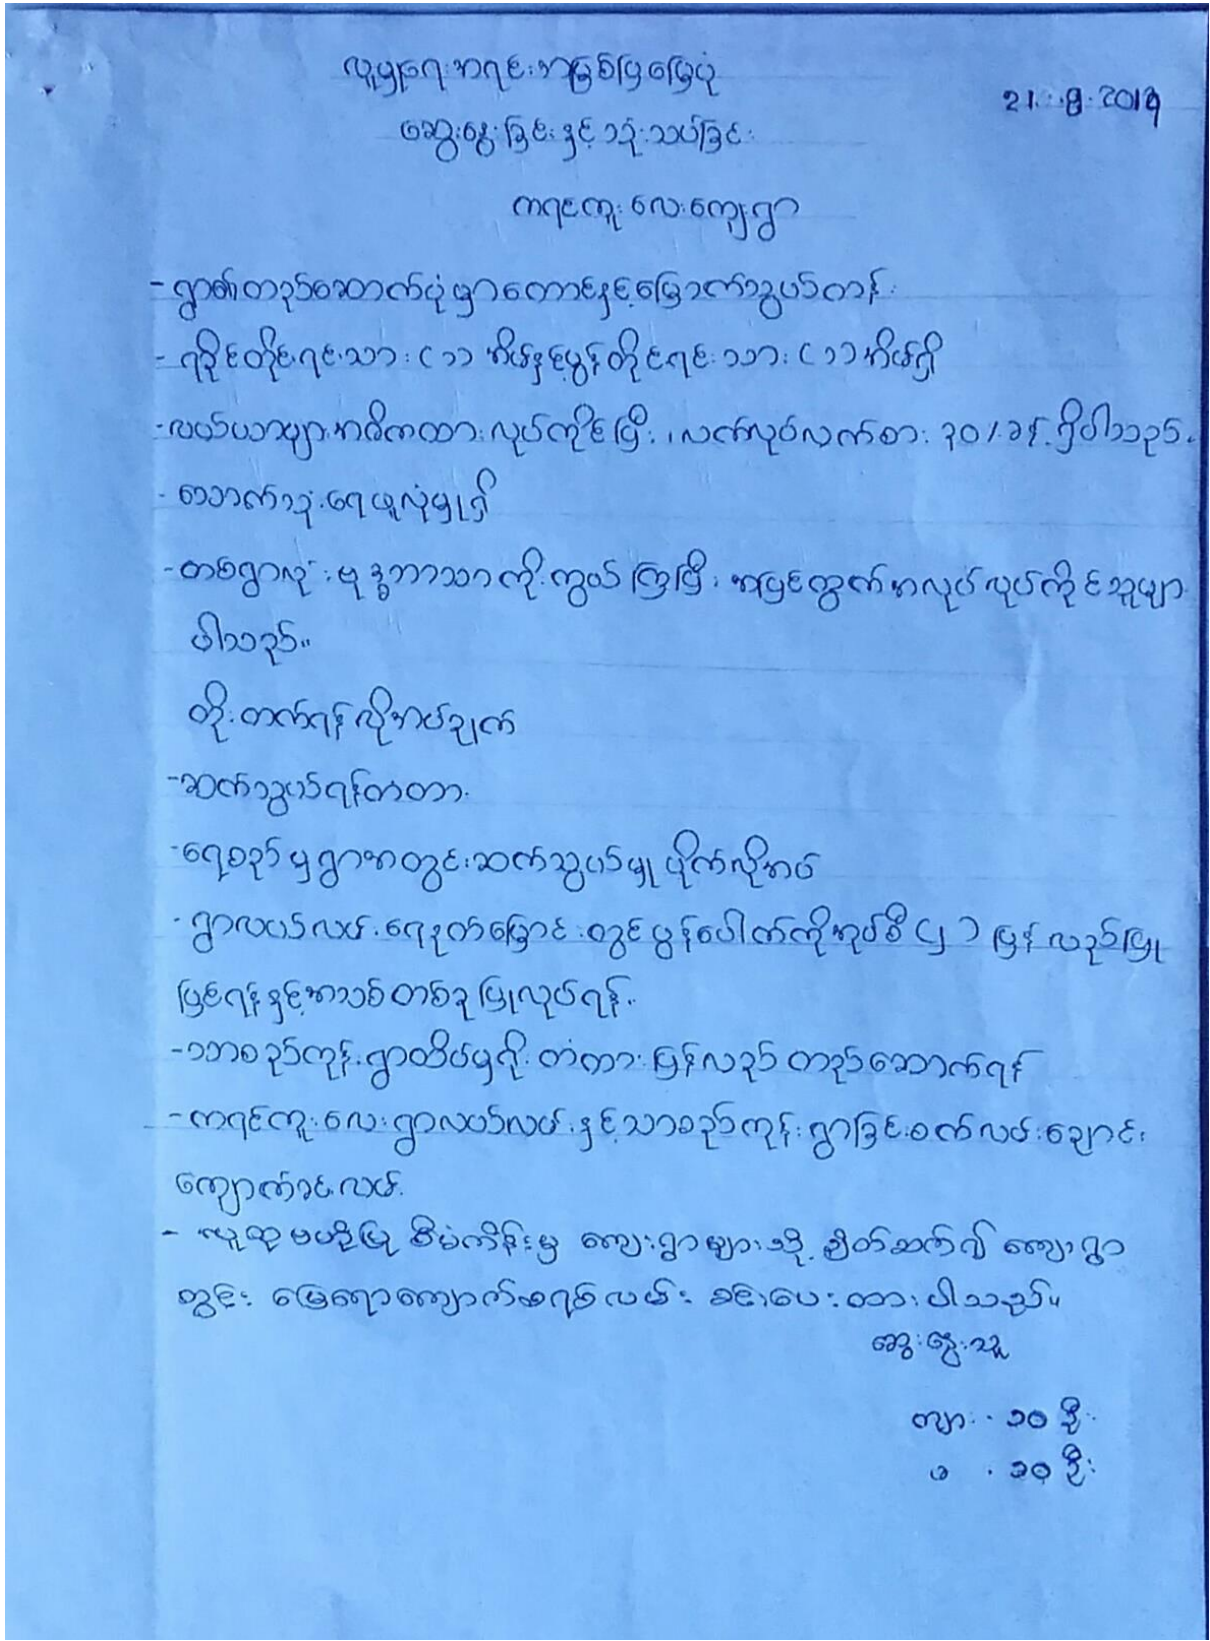 လူမှုရေးအရင်းအမြစ်ပြမြေပုံ
21.8.2019
ဆွေးနွေးခြင်းနှင့်သုံးသပ်ခြင်း
ကရင်ကူးလေးကျေးရွာ
- ရွာ၏တည်ဆောက်ပုံမှာတောင်နှင့်မြောက်သွယ်တန်း
- ရခိုင်တိုင်းရင်းသား (၁) အိမ်နှင့်မွန်တိုင်းရင်းသား (၁) အိမ်ရှိ
- လယ်ယာများအဓိကထားလုပ်ကိုင်ပြီး၊ လက်လုပ်လက်စား ၃၀% ခန့်ရှိပါသည်။
- သောက်သုံးရေဖူလုံမှုရှိ
- တစ်ရွာလုံးဗုဒ္ဓဘာသာကိုးကွယ်ကြပြီး အပြင်ထွက်အလုပ်လုပ်ကိုင်သူများ
ပါသည်။
တိုးတက်ရန်လိုအပ်ချက်
- ဆက်သွယ်ရန်တံတား
- ရေစည်မှရွာအတွင်းဆက်သွယ်မှုပိုက်လိုအပ်
- ရွာလယ်လမ်းရေနုတ်မြောင်းတွင်မွန်ပေါက်ကိုအုပ်စီ (၂) ပြန်လည်ပြု
ပြင်ရန်နှင့်အသစ်တစ်ခုပြုလုပ်ရန်။
- သာစည်ကုန်းရွာထိပ်မှရိုးတံတားပြန်လည်တည်ဆောက်ရန်
- ကရင်ကူးလေးရွာလယ်လမ်းနှင့်သာစည်ကုန်းရွာခြင်းစက်လမ်းချောင်း
ကျောက်ခင်းလမ်း
- လူထုဗဟိုပြု စီမံကိန်းမှ ကျေးရွာများသို့ ချိတ်ဆက်၍ ကျေးရွာ
တွင်း မြေရောကျောက်စရစ်လမ်း ခင်းပေးထားပါသည်။
ဆွေးနွေးသူ
ကျား - ၁၀ ဦး
မ - ၁၀ ဦး